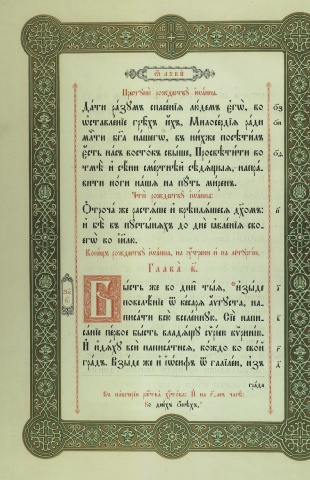 Ѿ лꙋкѝ
Престꙋ́пи рождествꙋ̀ і҆ѡа́нна.
Да́ти ра́зꙋмъ спасе́нїѧ лю́демъ є҆гѡ̀, во
ѡ҆ставле́нїе грѣ̑хъ и҆́хъ, Милосе́рдїѧ ра́ди
мл҃ти бг҃а на́шегѡ, въ ни́хже посѣти́лъ
є҆́сть на́съ восто́къ свы́ше, Просвѣти́ти во
тмѣ̀ и҆ сѣ́ни сме́ртнѣй сѣдѧ́щыѧ, напра́-
вити но́ги на́шѧ на пꙋ́ть ми́ренъ.
рождествꙋ̀ і҆ѡа́нна:
Ѻ҆троча́ же растѧ́ше и҆ крѣплѧ́шесѧ дх҃омъ:
и҆ бѣ̀ въ пꙋсты́нѧхъ до днѐ ꙗ҆вле́нїѧ сво-
егѡ̀ ко і҆и҃лю.
Коне́цъ рождествꙋ̀ і҆ѡа́нна, на ᲂу҆́трени и҆ на лїтꙋргі́и.
Глава̀ в҃.
Бы́сть же во дни̑ ты̑ѧ, и҆зы́де
повелѣ́нїе ѿ ке́сарѧ а҆́ѵгꙋста, на-
писа́ти всю̀ вселе́ннꙋю. Сїѐ напи-
са́нїе пе́рвое бы́сть влады́щꙋ сѷрі́ею кѷри́нїю.
И҆ и҆дѧ́хꙋ всѝ написа́тисѧ, ко́ждо во сво́й
гра́дъ. Взы́де же и҆ і҆ѡ́сифъ ѿ галїле́и, и҆з̾
гра́да
Въ наве́черїи ржⷭ҇тва̀ хрⷭ҇то́ва:
Во дни̑хъ ѻ҆́нѣхъ,